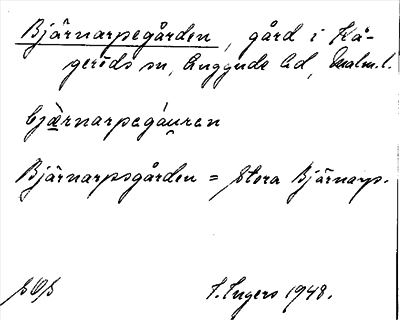 Bjärnarpegården, gård i Kå-
geröds sn, Luggude hd, Malm. l.
bjæ̀rnarpagáuren
Bjärnarpsgården = Stora Bjärnarp.
SOS I. Ingers 1948.